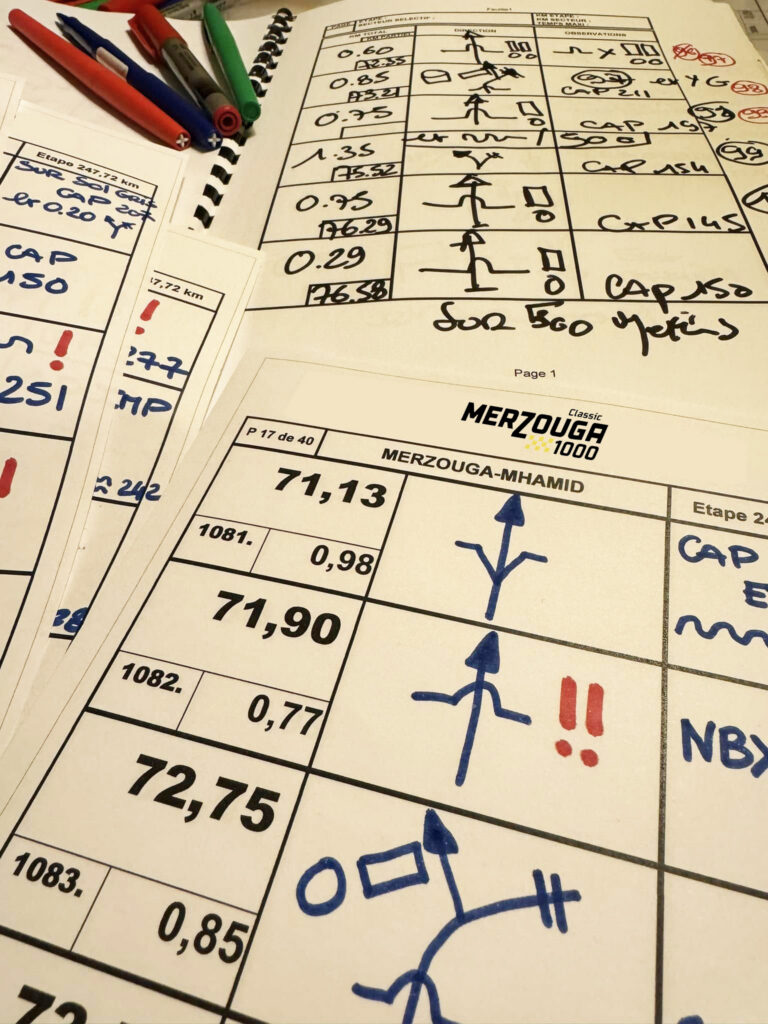 Feuille1
PAGE
ETAPE :
SECTEUR SELECTIF :
KM ETAPE :
KM SECTEUR :
TEMPS MAXI :
KM TOTAL
KM PARTIEL
DIRECTION
OBSERVATIONS
0.60
72.35
0.85
73.21
97
CAP 211
98
0.75
CAP 157
1.35
75.52
CAP 154
99
0.75
76.29
CAP 145
0.29
76.58
CAP 150
SUR 500
Page 1
Etape 247,72 km
SUR SOL GRIS
CAP 207
0.20
CAP
150
!
251
!
7,72 km
!
277
242
Classic
MERZOUGA
1000
P 17 de 40
MERZOUGA-MHAMID
Etape 24
71,13
1081.
0,98
CAP
E
71,90
1082.
0,77
!!
NBX
72,75
1083.
0,85